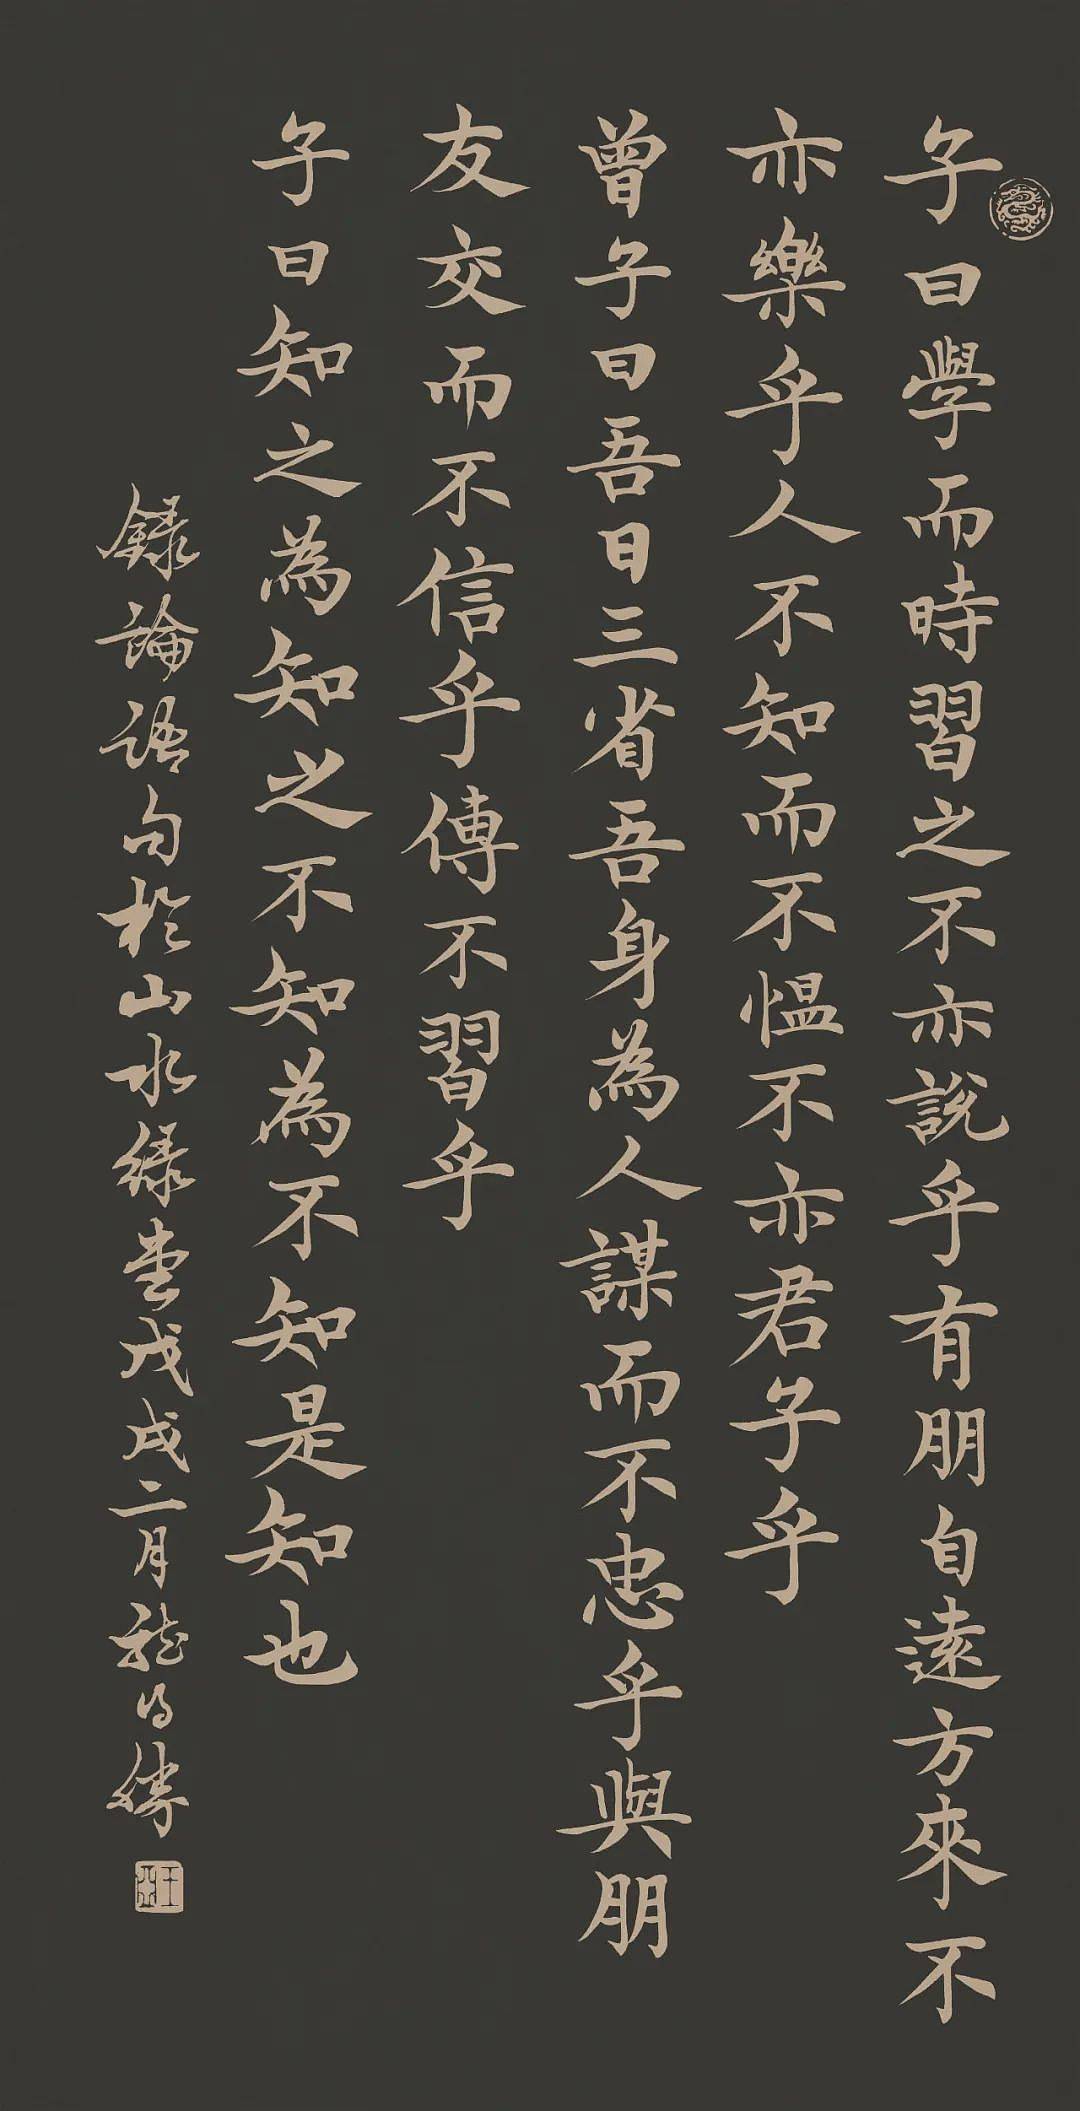 子曰學而時習之不亦説乎有朋自遠方來不
亦樂乎人不知而不愠不亦君子乎
曾子曰吾日三省吾身為人謀而不忠乎與朋
友交而不信乎傳不習乎
子曰知之為知之不知為不知是知也
錄論語句於山水綠堂戊戌二月